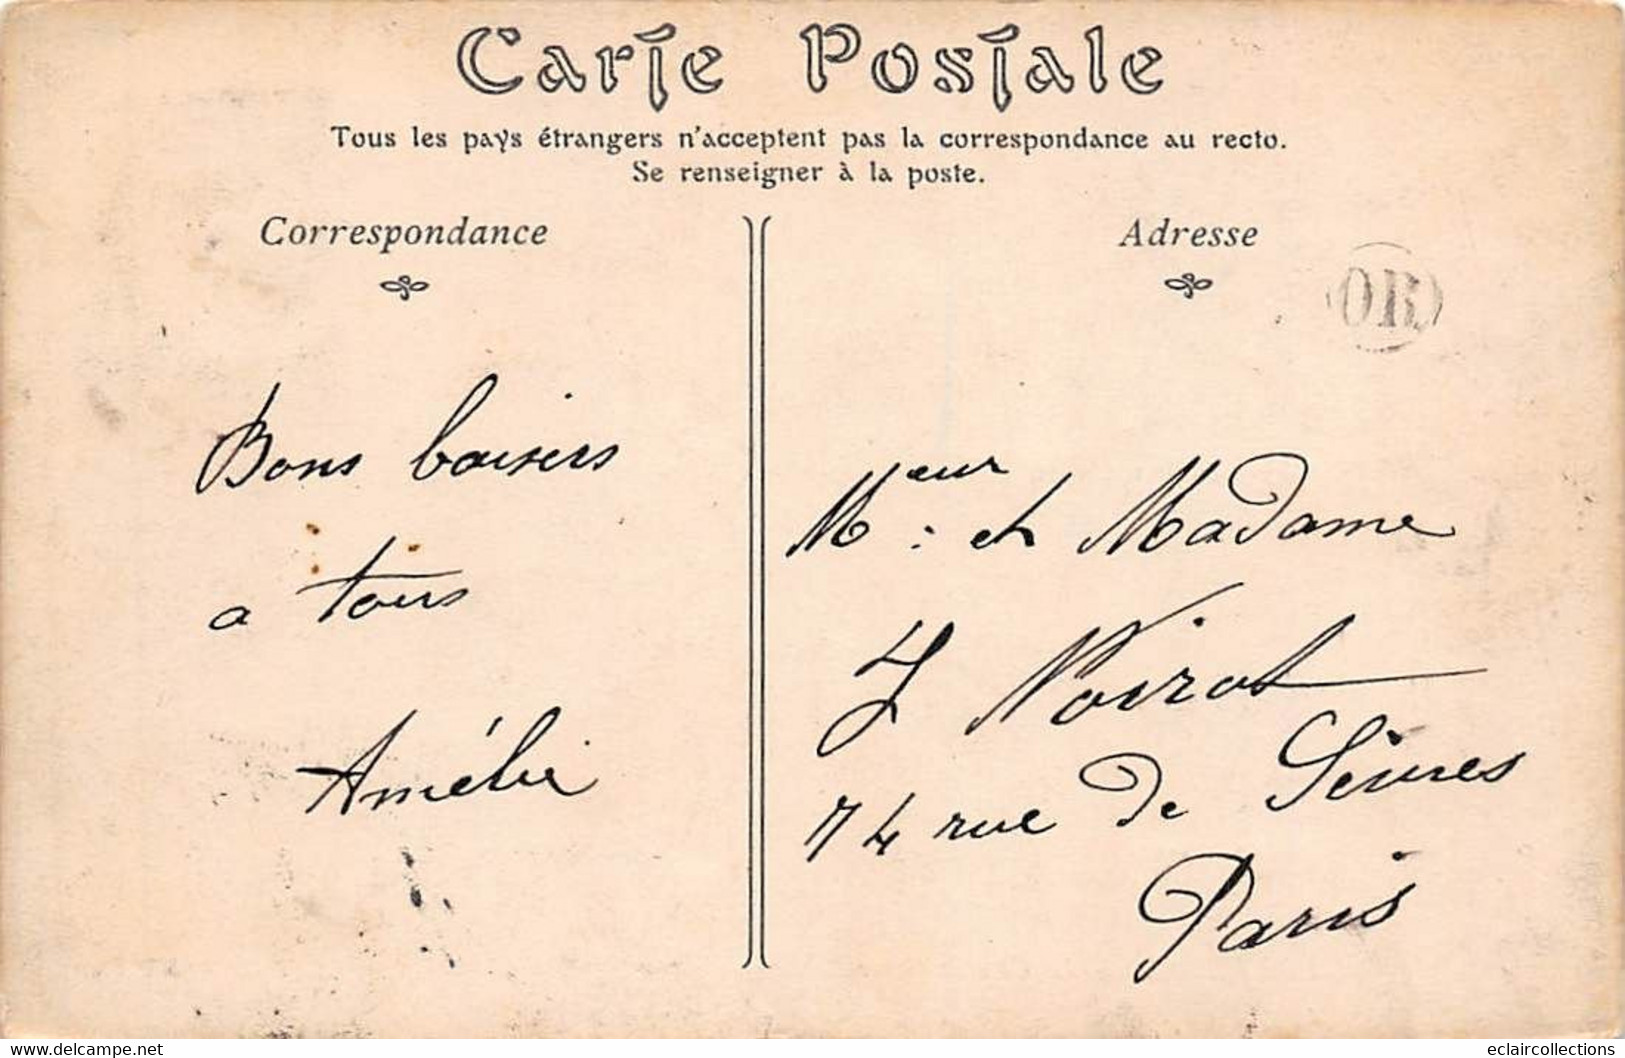 Carte Postale
Tous les pays étrangers n'acceptent pas la correspondance au recto.
Se renseigner à la poste.
Correspondance
Bons baisers
a tous
Amélie
Adresse
OR
Meur : et Madame
J Noirot
74 rue de Sèvres
Paris
delcampe.net
eclaircollections